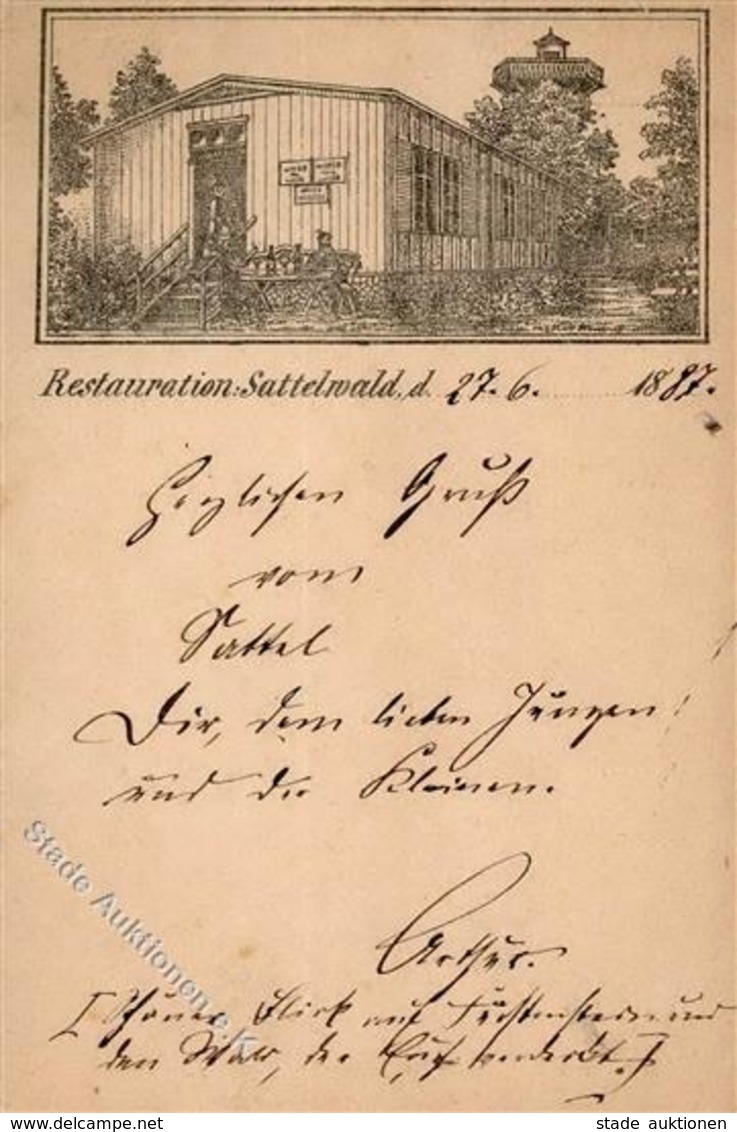 Restauration: Sattelwald, d. 27. 6. 1887.
Herzlichen Gruß
vom
Sattel
Dir, dem lieben Jungen
und der Kleinen.
Arthur.
Schöner Blick auf Fürstenstein und
den Wald, der Euch verdeckt.
Stade Auktionen e.K.
stade auktionen